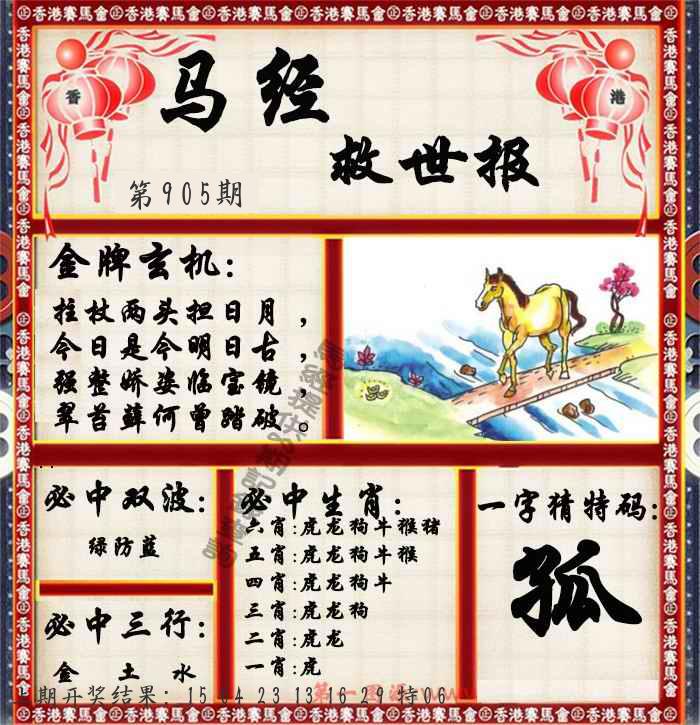 香港賽馬會
香
港
马经
救世报
第905期
金牌玄机:
拄杖两头担日月，
今日是今明日古，
强整娇姿临宝镜，
翠苔藓何曾踏破。
必中双波:
绿防蓝
必中三行:
金 土 水
必中生肖:
六肖:虎龙狗牛猴猪
五肖:虎龙狗牛猴
四肖:虎龙狗牛
三肖:虎龙狗
二肖:虎龙
一肖:虎
一字猜特码:
孤
期开奖结果: 15 04 23 13 16 29 特06
第一图源